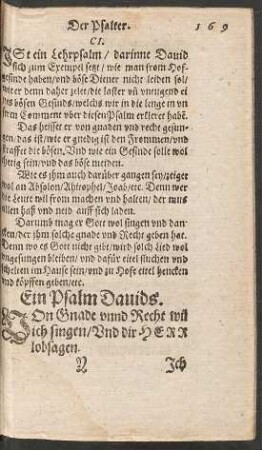 Der Psalter. 169
CI.
ISt ein Lehrpsalm / darinne Dauid
sich zum Exempel setzt / wie man from Hof-
gesinde haben / vnd böse Diener nicht leiden sol /
wie er denn daher zelet / die laster vñ vntugend ei
nes bösen Gesinds / welchs wir in die lenge in vn
serm Comment vber diesen Psalm erkleret habē.
Das heisset er von gnaden vnd recht gesun-
gen / das ist / wie er gnedig ist den Frommen / vnd
straffet die bösen. Vnd wie ein Gesinde solle wol
tüchtig sein / vnd das böse meiden.
Wie es jhm auch darüber gangen sey / zeiget
wol an Absolon / Ahitophel / Joab / etc. Denn wer
die Leute wil from machen vnd halten / der mus
allen haß vnd neid auff sich laden.
Darumb mag er Gott wol singen vnd dan-
cken / der jhm solche gnade vnd Recht geben hat.
Denn wo es Gott nicht gibt / wird solch Lied wol
vngesungen bleiben / vnd dafür eitel fluchen vnd
schelten im Hause sein / vnd zu Hofe eitel hencken
vnd köpffen geben / etc.
Ein Psalm Dauids.
VOn Gnade vnnd Recht wil
ich singen / Vnd dir HERR
lobsagen.
Y Ich